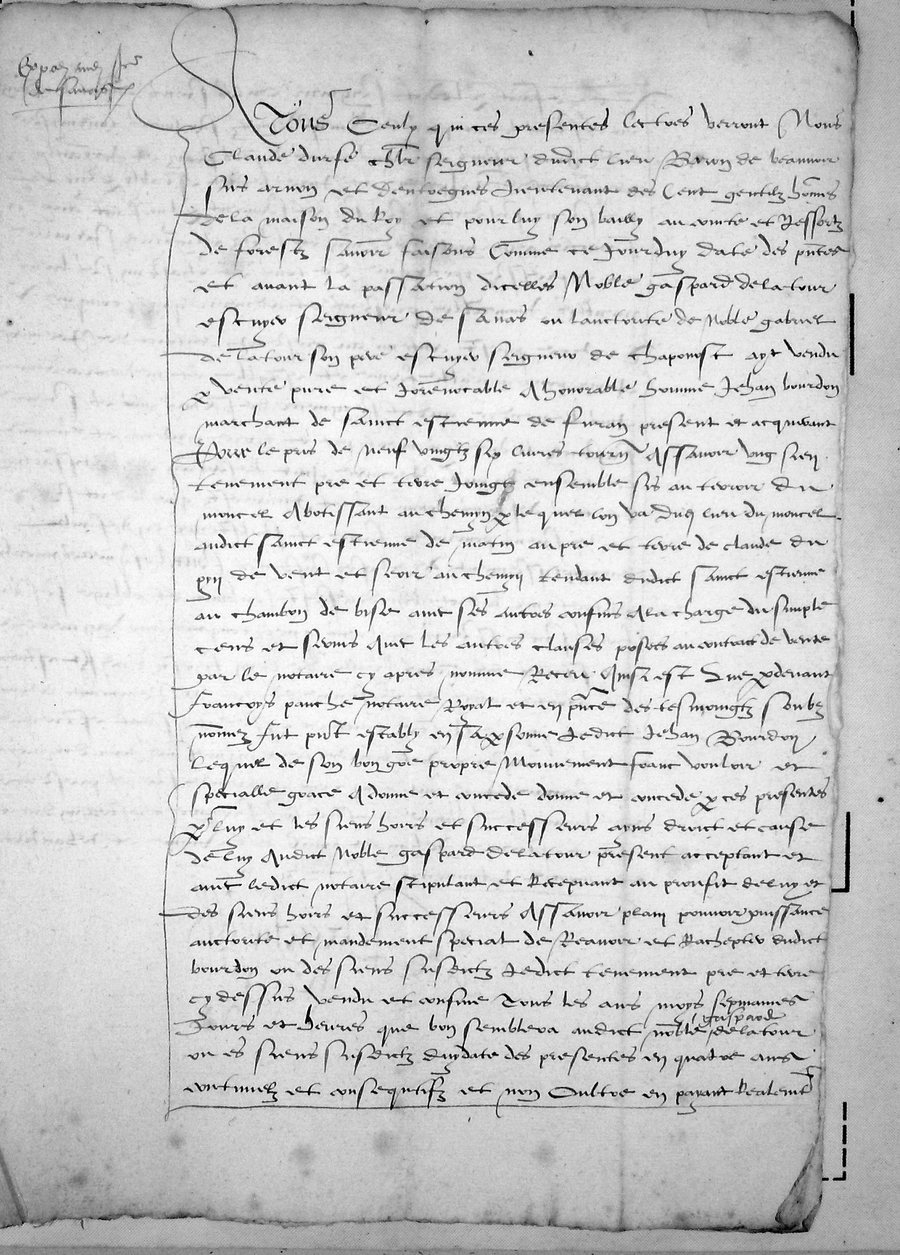 A Tous Ceulx qui ces presentes lectres verront Nous
Claude durfe chlr seigneur dudict lieu Baron de beauvoir
sus arnon et dentregues lieutenant des Cent gentilz homes
de la maison du Roy et pour luy son bailly au conte et Ressortz
de forestz scavoir faisons Comme ce Jourduy date des pntes
et avant la passation dicelles Noble gaspard delatour
escuyer seigneur de sanas ou lauctorite de noble gabriel
delatour son pere escuyer seigneur de chaponost ayt vendu
p vente pure et Jrevocable A honorable homme Jehan bourdon
marchant de sainct estienne de furan present et acquerant
Pour le pris de neuf vingtz six livres tourn Assavoir ung sien
tenement pre et terre Joingtz ensemble sis au terroir du
moncel Abotissant au chemyn p lequel lon va dud lieu du moncel
audict sainct estienne de matin au pre et terre de claude du
pyn de vent et soir au chemyn tendant dudict sainct estienne
au chambon de bise avec ses autres confins A la charge du simple
cens et servis Avec les autres clauses poses au contract de vente
par le notaire cy apres nomme Receu Ainsi est Que p devant
francoys panche notaire Royal et en pnce des tesmoingtz soubz
nomez fut pnt estably en sa psonne ledict Jehan Bourdon
lequel de son bon gre propre Mouvement franc vouloir et
specialle grace A donne et concede donne et concede p ces presentes
p luy et les siens hoirs et successeurs ayns droict et cause
de luy Audict Noble gaspard delatour present acceptant et
avec ledict notaire stipulant et Recepvant au prouffit deluy et
des siens hoirs et successeurs Assavoir plain pouvoir puissance
auctorite et mandement special de Reavoir et Rachepter dudict
bourdon ou des siens susdictz ledict tenement pre et terre
cy dessus vendu et confine Tous les ans moys sepmaines
Jours et heures que bon semblera audict noble gaspard delatour
ou es siens susdictz duy date des presentes en quatre ans
continuelz et consequtifz et non Oultre en payant Realemt